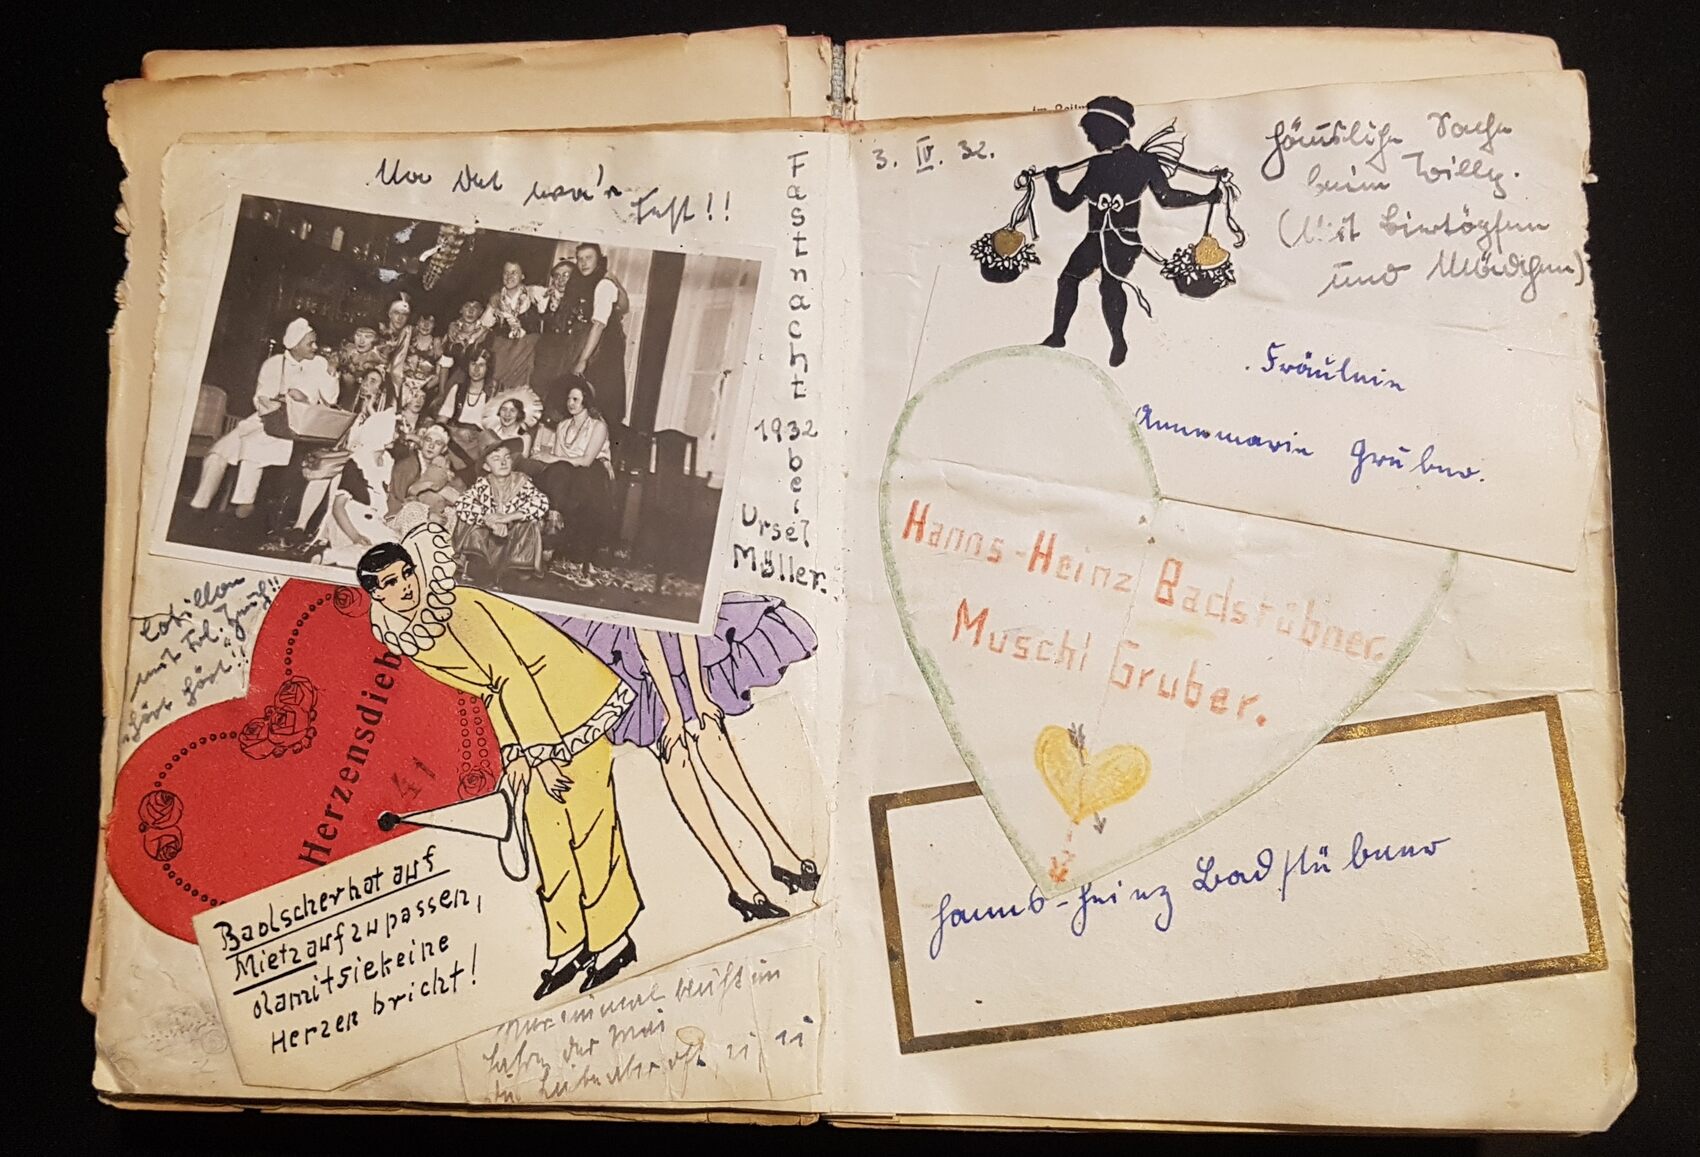 Na dat war'n Fest!!
Fastnacht
1932
bei
Ursel
Müller.
Cotillon
mit Frl. Zeug!!
"Hört hört"!!
Herzensdieb
41
Badscher hat auf
Mietz aufzupassen,
damit sie keine
Herzen bricht!
Nur einmal blüht im
Jahre der Mai
die Liebe aber oft
3. IV. 32.
Häusliche Sache
beim Willy.
(Mit Biertöpfen
und Mädchen)
Fräulein
Annemarie Gruber.
Hanns-Heinz Badstübner.
Muschi Gruber.
Hanns-Heinz Badstübner